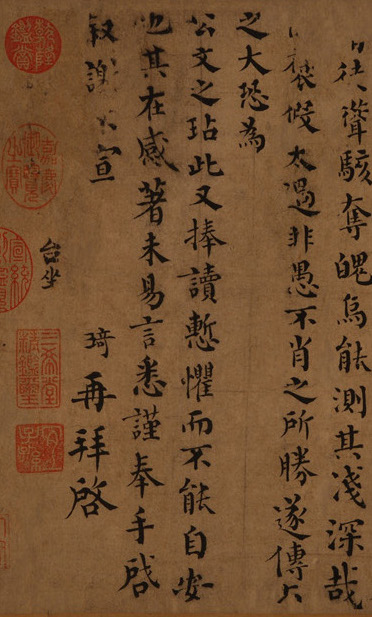 往聳駭奪魄烏能測其淺深哉
裝假太過非愚不肖之所勝遂傳
之大恐為
公文之玷此又捧讀慙懼而不能自安
也其在感著未易言悉謹奉手啓
叙謝 宣
琦再拜啓
台坐
乾隆鑑賞
三希堂精鑑璽
宜子孫